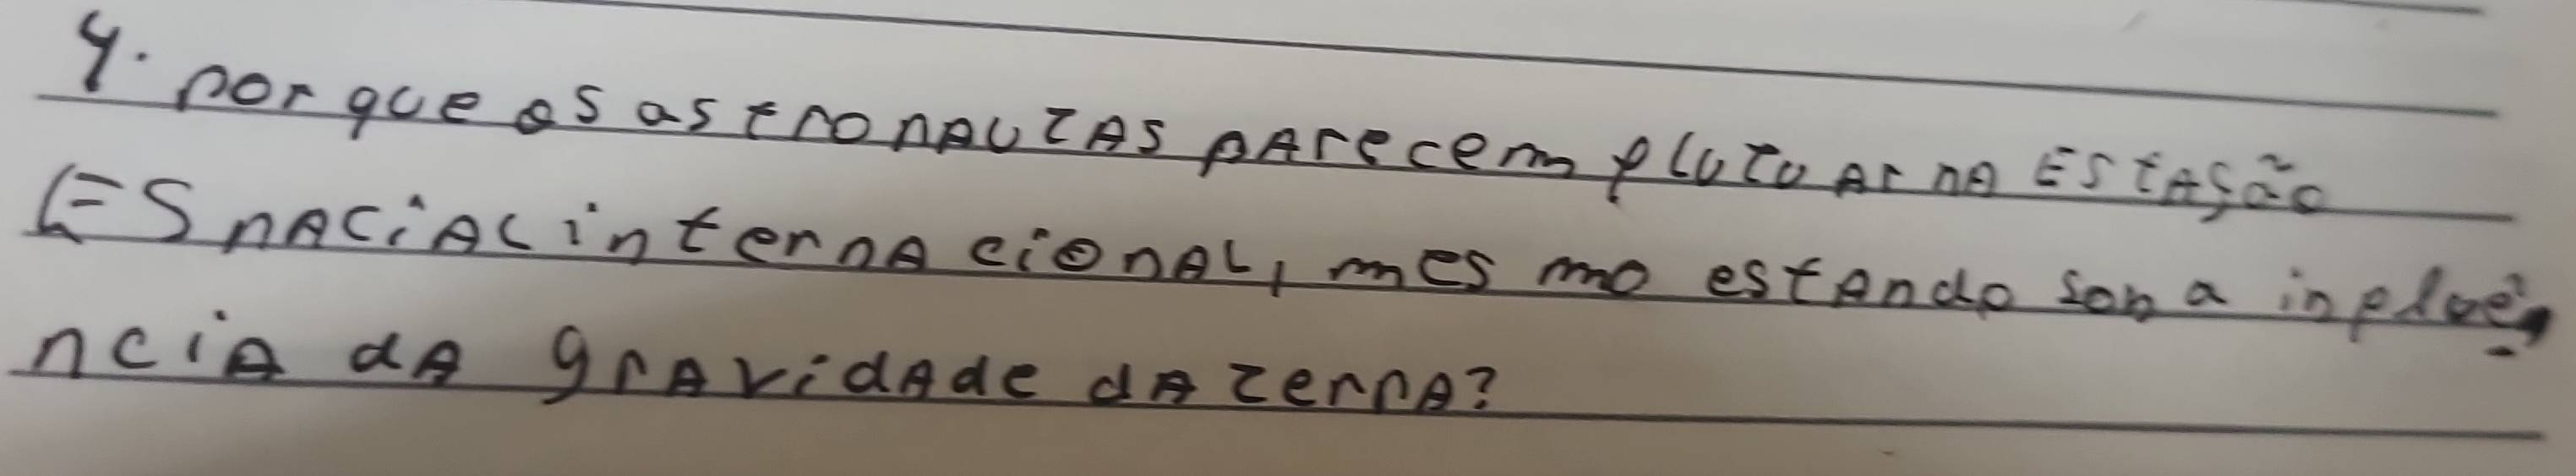 4. por que os astronAUTAS pArecem flutuAr nA EStAção
ESpACiAL internAcionAL, mesmo estAndo sob a influê
nciA dA grAvidAde dA TerrA?